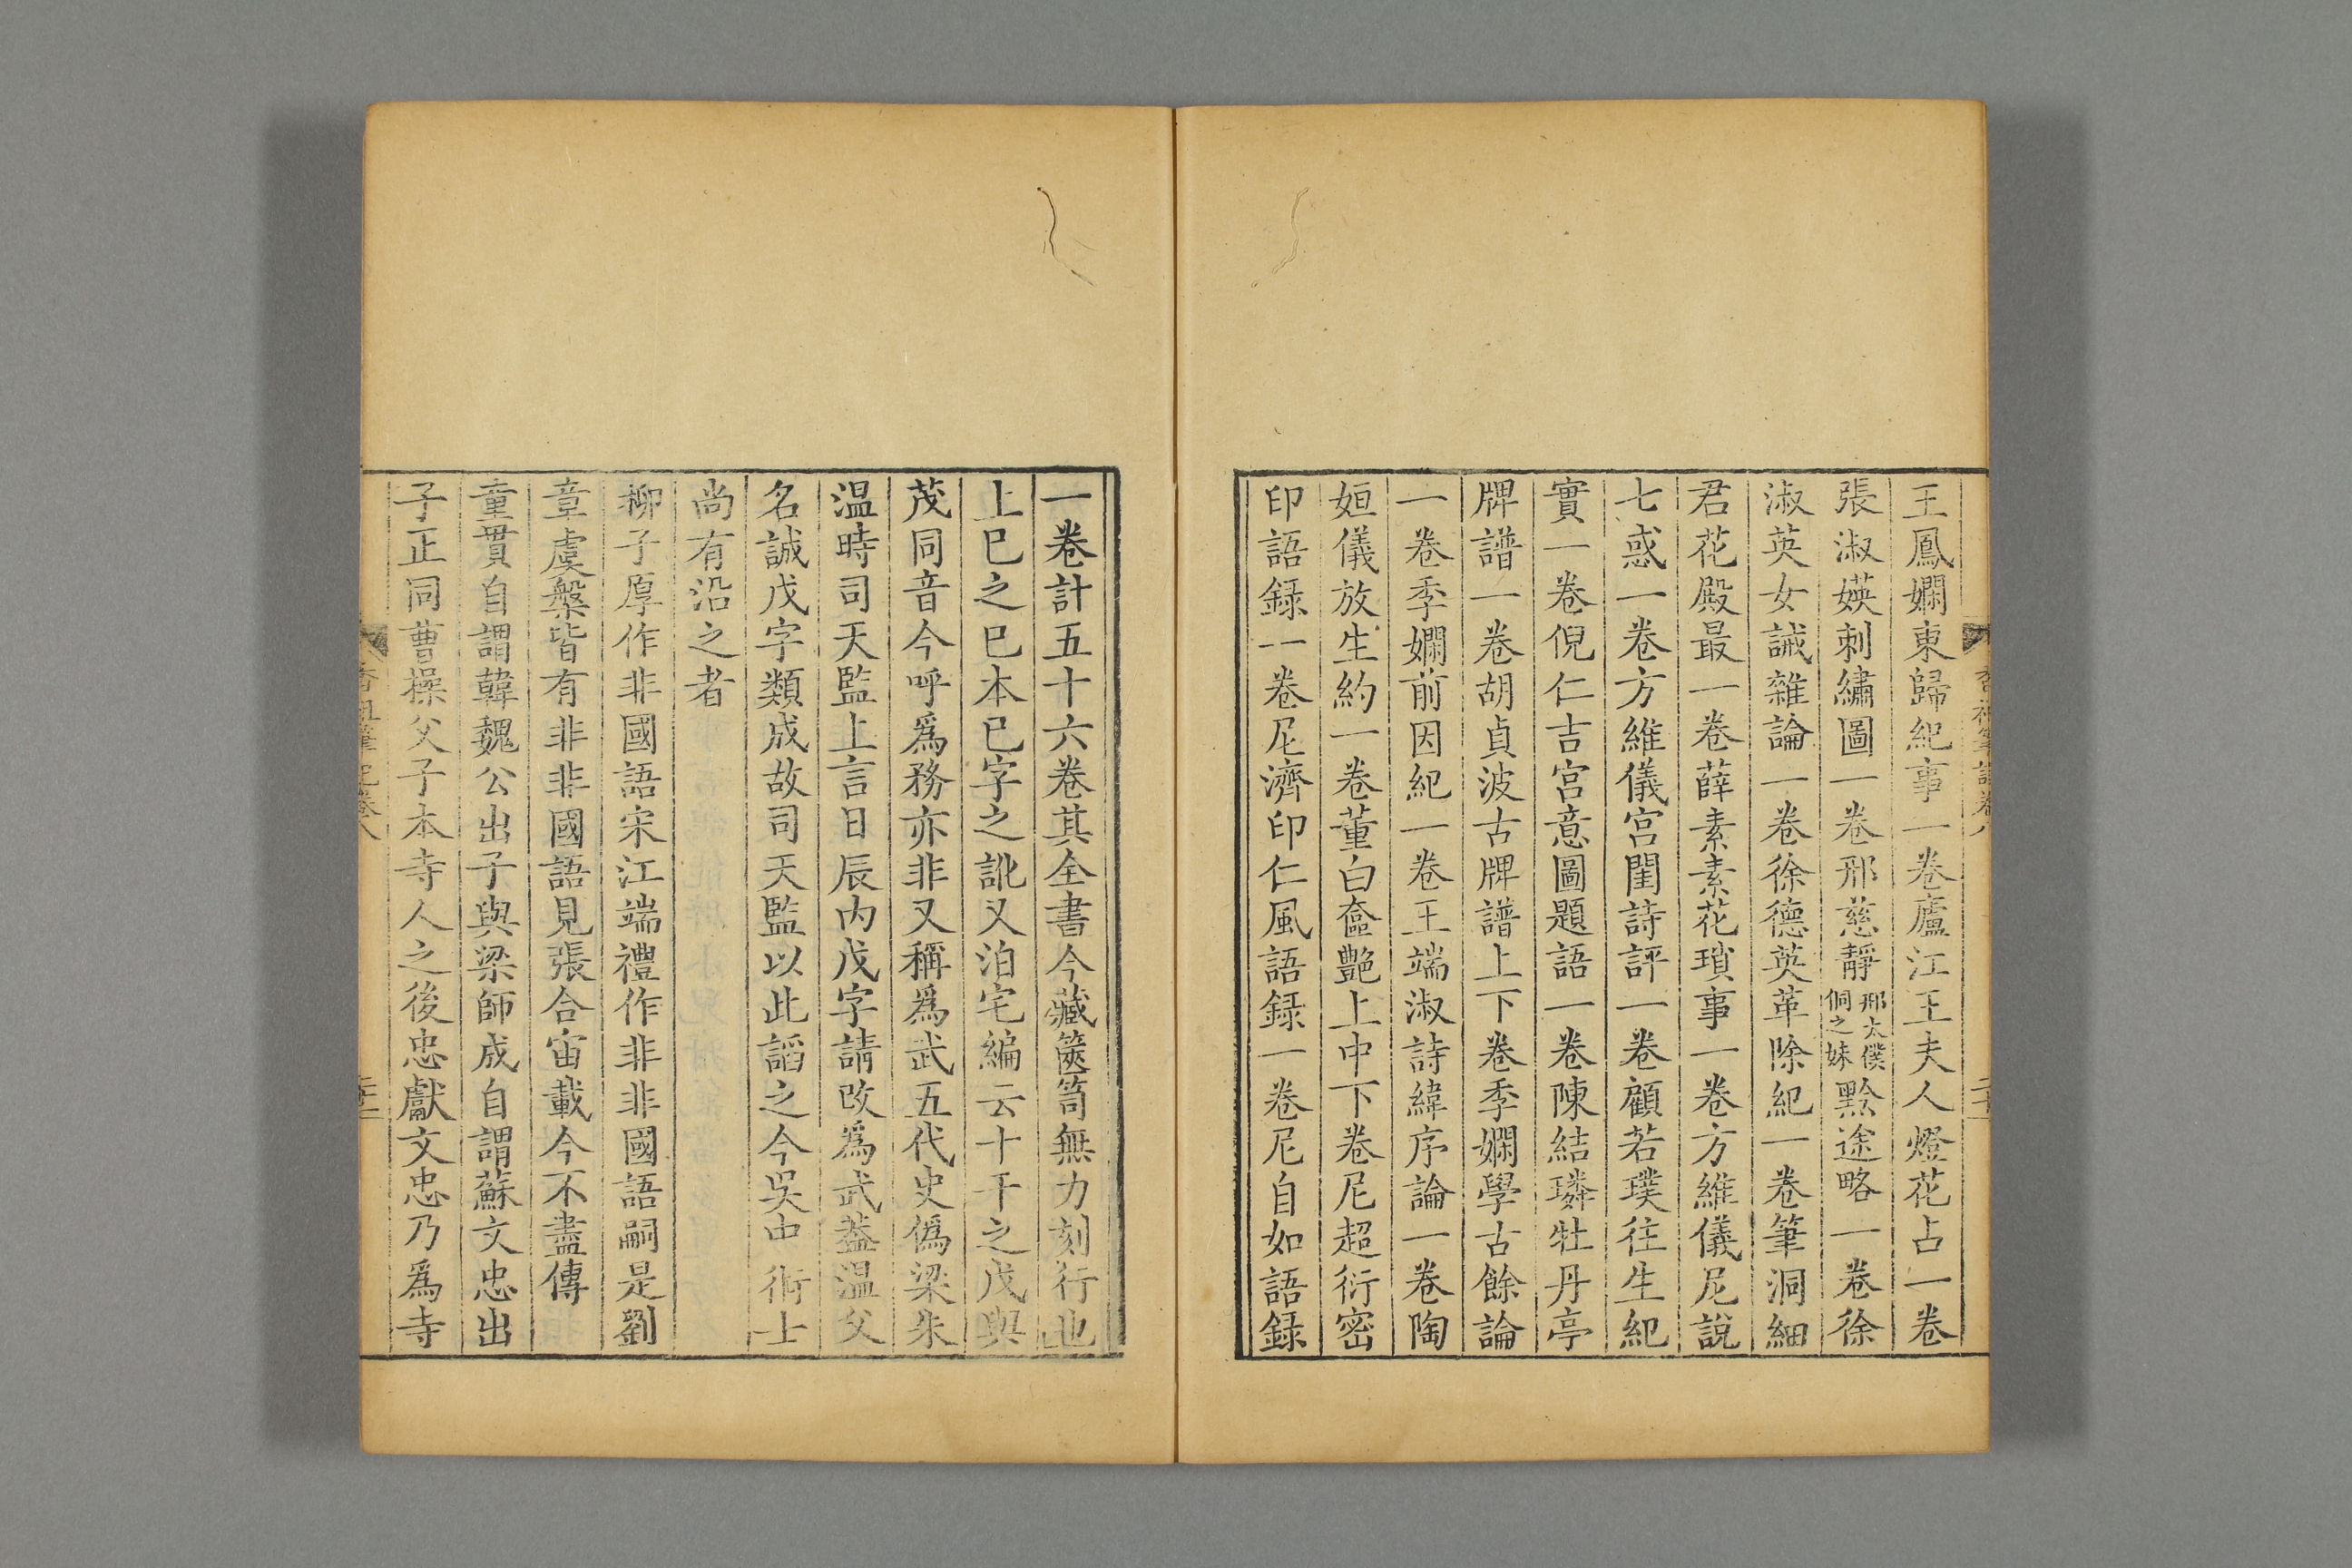 王鳳嫻東歸紀事一卷廬江王夫人燈花占一卷
張淑媖刺繡圖一卷邢慈靜邢太僕侗之妹黔途略一卷徐
淑英女誡雜論一卷徐德英革除紀一卷筆洞細
君花殿最一卷薛素素花瑣事一卷方維儀尼說
七惑一卷方維儀宮閨詩評一卷顧若璞往生紀
實一卷倪仁吉宮意圖題語一卷陳結璘牡丹亭
牌譜一卷胡貞波古牌譜上下卷季嫻學古餘論
一卷季嫻前因紀一卷王端淑詩緯序論一卷陶
姮儀放生約一卷董白奩艶上中下卷尼超衍密
印語録一卷尼濟印仁風語録一卷尼自如語録
一卷計五十六卷其全書今藏篋笥無力刻行也
上巳之巳本已字之訛又泊宅編云十干之戊與
茂同音今呼爲務亦非又稱爲武五代史僞梁朱
温時司天監上言日辰内戊字請改爲武葢温父
名誠戊字類成故司天監以此謟之今吳中術士
尚有沿之者
柳子厚作非國語宋江端禮作非非國語嗣是劉
章虞槃皆有非非國語見張合宙載今不盡傳
童貫自謂韓魏公出子與梁師成自謂蘇文忠出
子正同曹操父子本寺人之後忠獻文忠乃爲寺
香祖筆記卷八